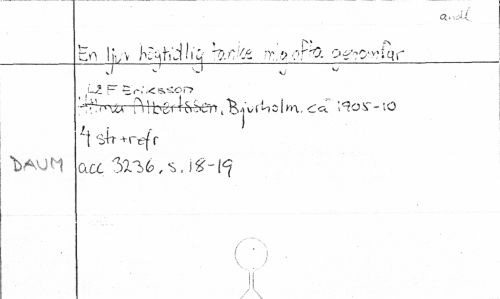 andl
En ljuv högtidlig tanke mig ofta genomfar
Leif Eriksson
Hilmer Albertsson, Bjurholm. ca 1905-10
4 str+refr
DAUM acc 3236, s. 18-19